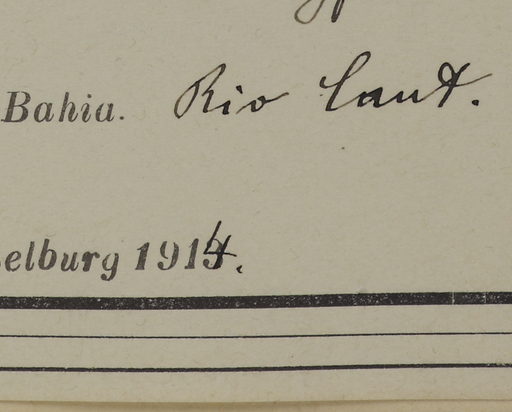 Bahia. Rio Cant.
elburg 1914.